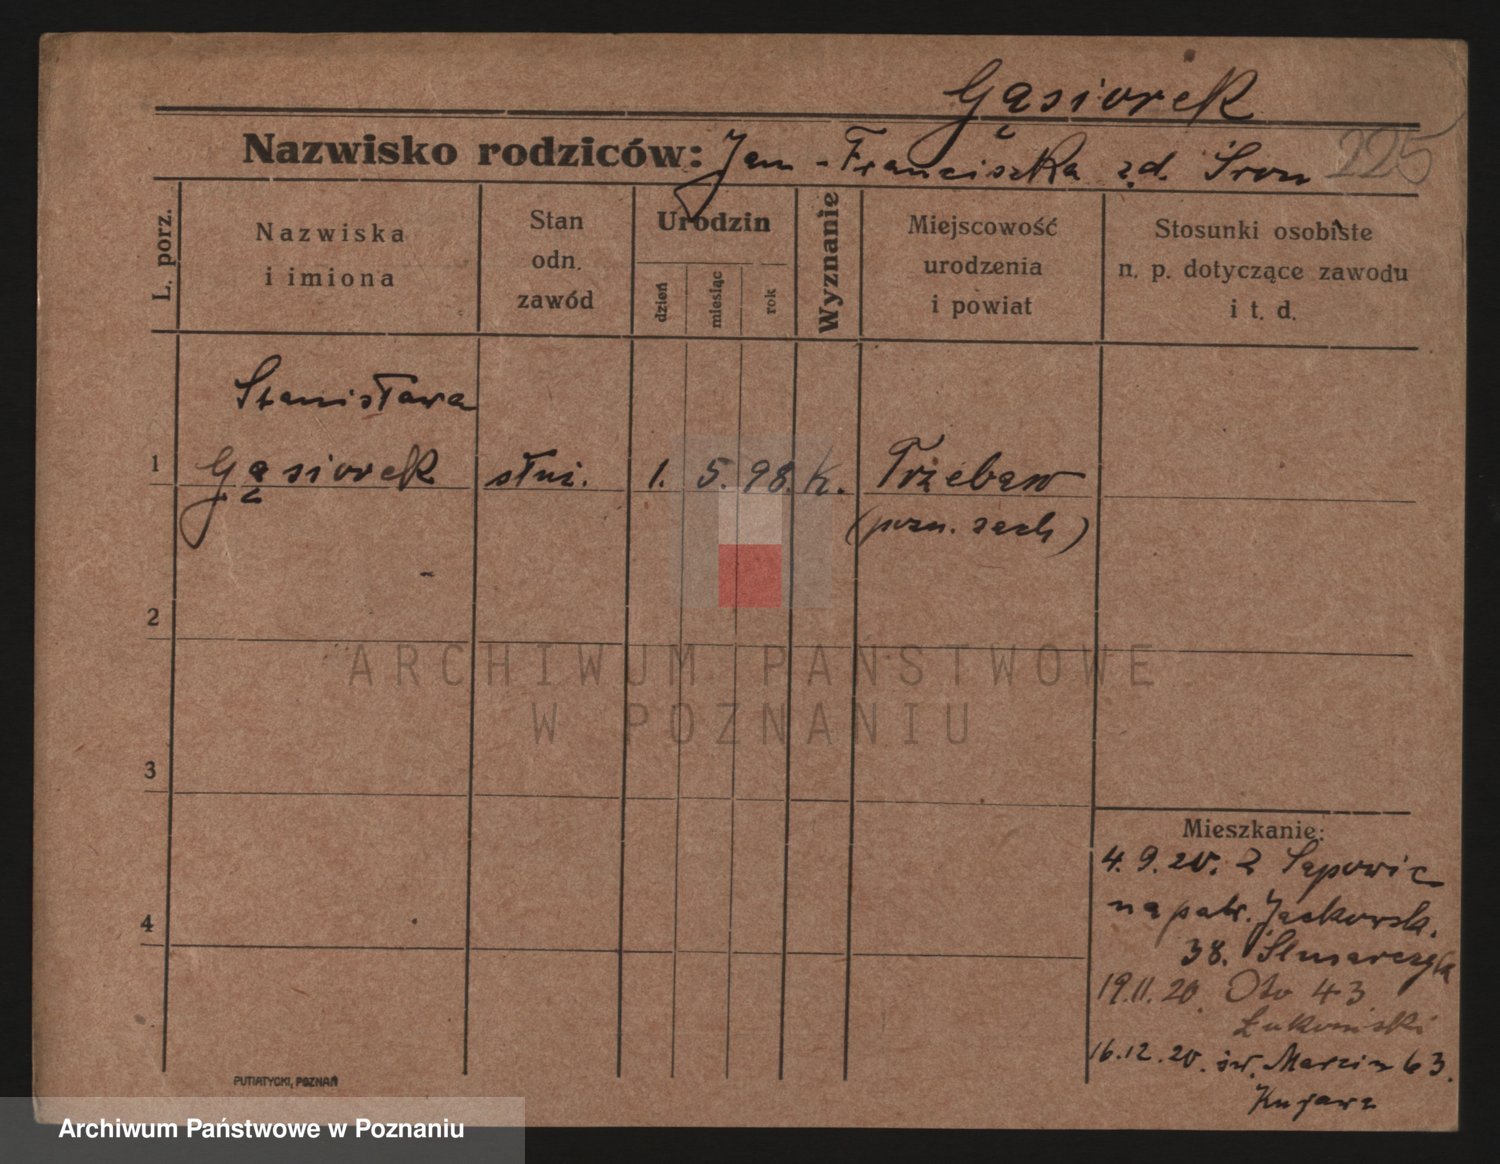 Gąsiorek
Nazwisko rodziców: Jan - Franciszka zd. Śron
225
L. porz.
Nazwiska
i imiona
Stan
odn.
zawód
Urodzin
dzień
miesiąc
rok
Wyznanie
Miejscowość
urodzenia
i powiat
Stosunki osobiste
n. p. dotyczące zawodu
i t. d.
Stanisława
1 Gąsiorek służ. 1. 5. 98. k. Trzebaw
(pozn. zach)
2
ARCHIWUM PAŃSTWOWE
W POZNANIU
3
Mieszkanie:
4. 9. 20. z Sąpowic
na pobr. Jackowsk.
4
38. Ślusarczyk
19.11.20. Oto 43
Łukomski
16.12.20. św. Marcin 63.
Kujawa
PUTIATYCKI, POZNAŃ
Archiwum Państwowe w Poznaniu